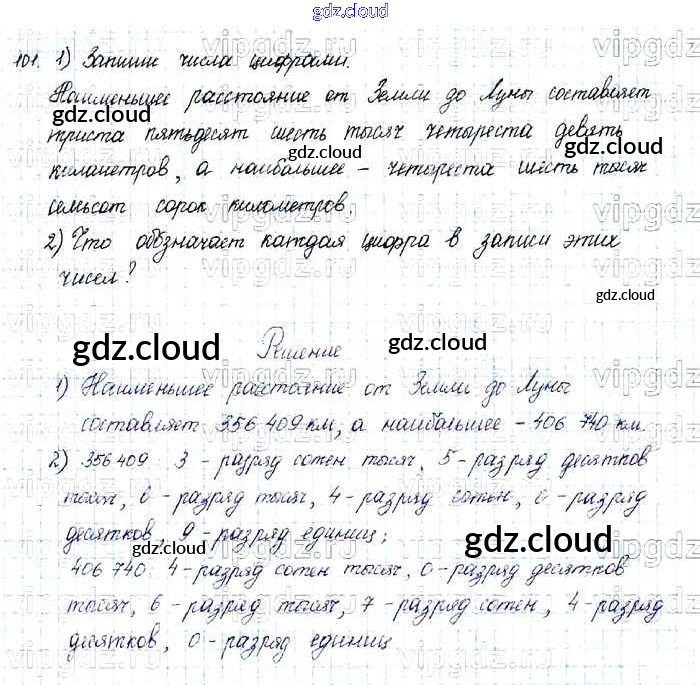 gdz.cloud
101. 1) Запиши числа цифрами.
Наименьшее расстояние от Земли до Луны составляет
триста пятьдесят шесть тысяч четыреста девять
километров, а наибольшее – четыреста шесть тысяч
семьсот сорок километров.
2) Что обозначает каждая цифра в записи этих
чисел?
Решение
1) Наименьшее расстояние от Земли до Луны
составляет 356 409 км, а наибольшее – 406 740 км.
2) 356 409: 3 – разряд сотен тысяч, 5 – разряд десятков
тысяч, 6 – разряд тысяч, 4 – разряд сотен, 0 – разряд
десятков, 9 – разряд единиц;
406 740: 4 – разряд сотен тысяч, 0 – разряд десятков
тысяч, 6 – разряд тысяч, 7 – разряд сотен, 4 – разряд
десятков, 0 – разряд единиц